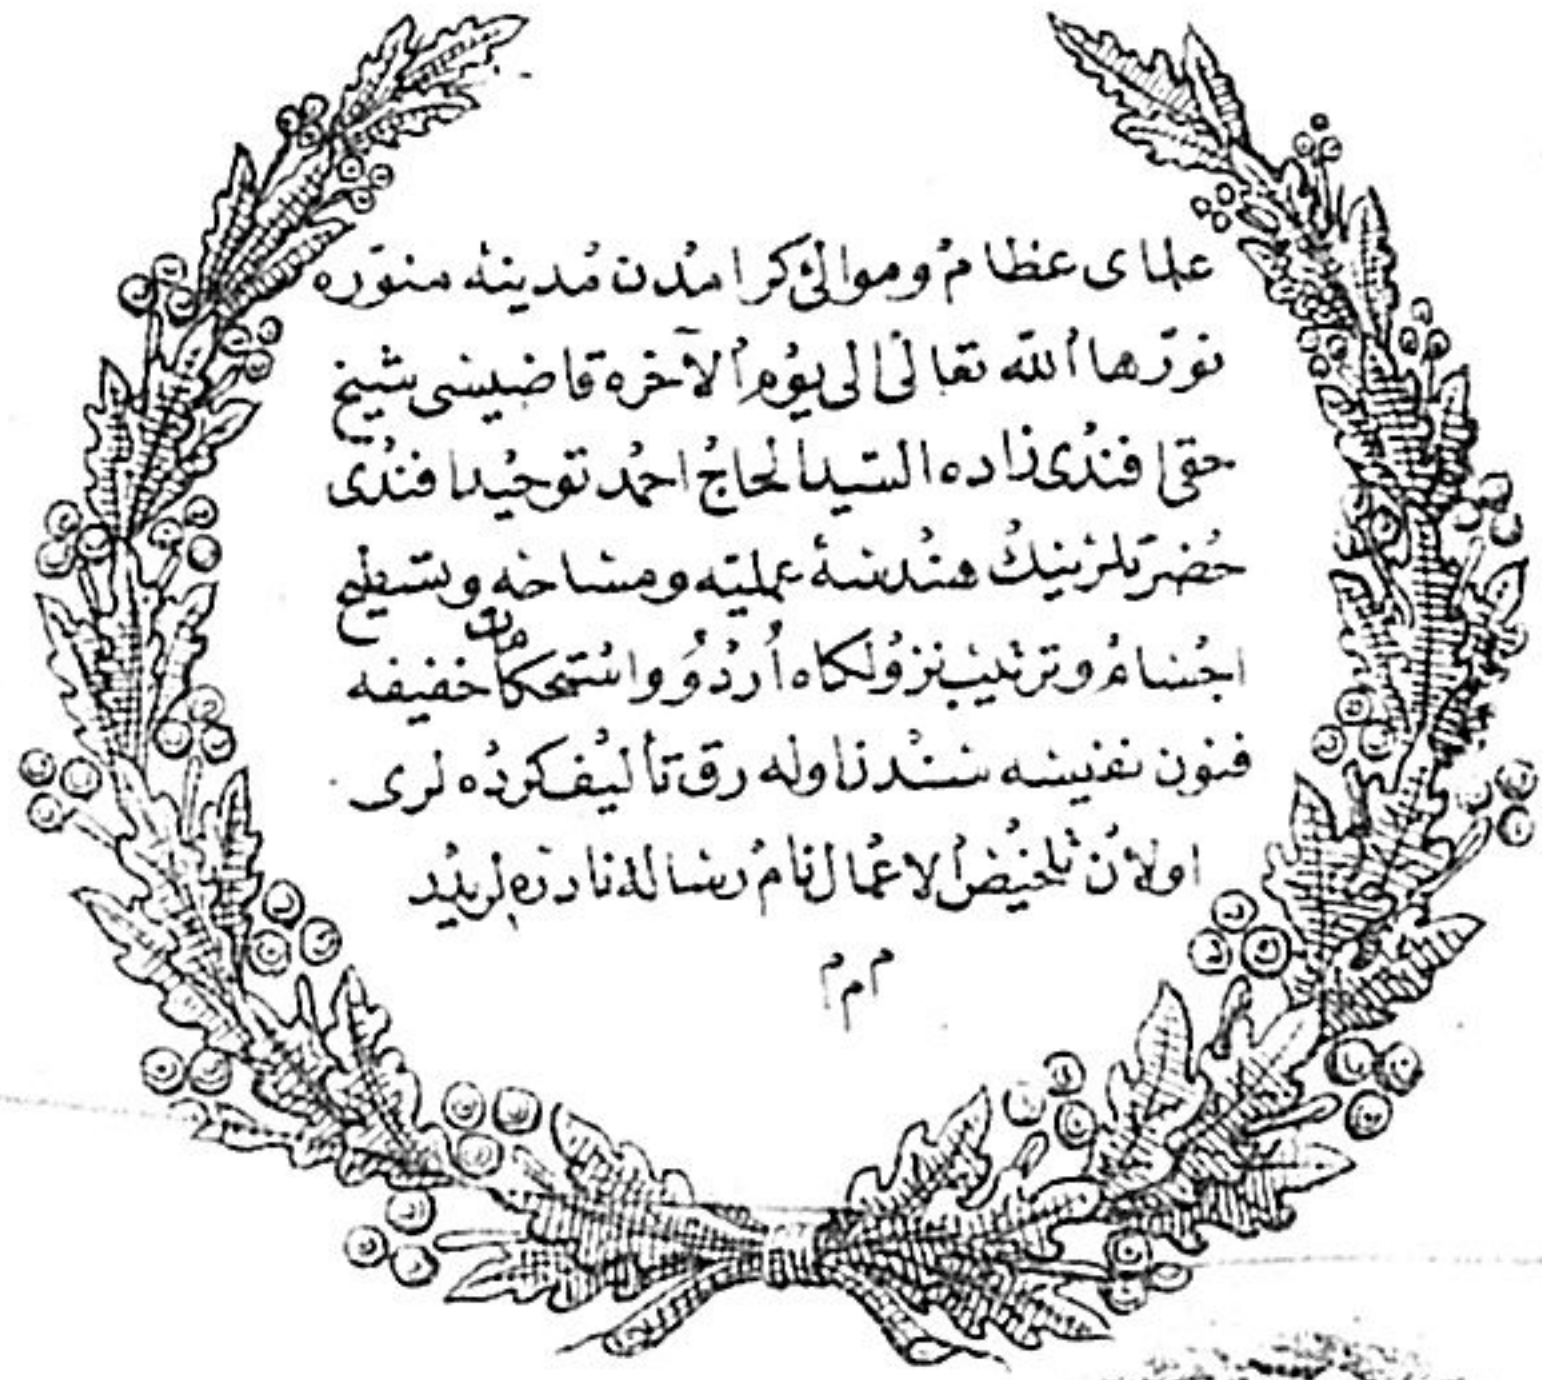 علمای عظام وموالئ كرامدن مدینهٔ منوّره
نوّرها الله تعالی الی یوم الآخره قاضیسی شیخ
حقی افندی زاده السّید الحاج احمد توحید افندی
حضرتلرینك هندسهٔ عملیّه ومساحه وتسطیح
اجسام وترتیب نزولكاه اردو واستحكامات خفیفه
فنون نفیسه سندن اوله رق تألیف كرده لری
اولان تلخیص الاعمال نام رسالهٔ نادره لریدر
م م م